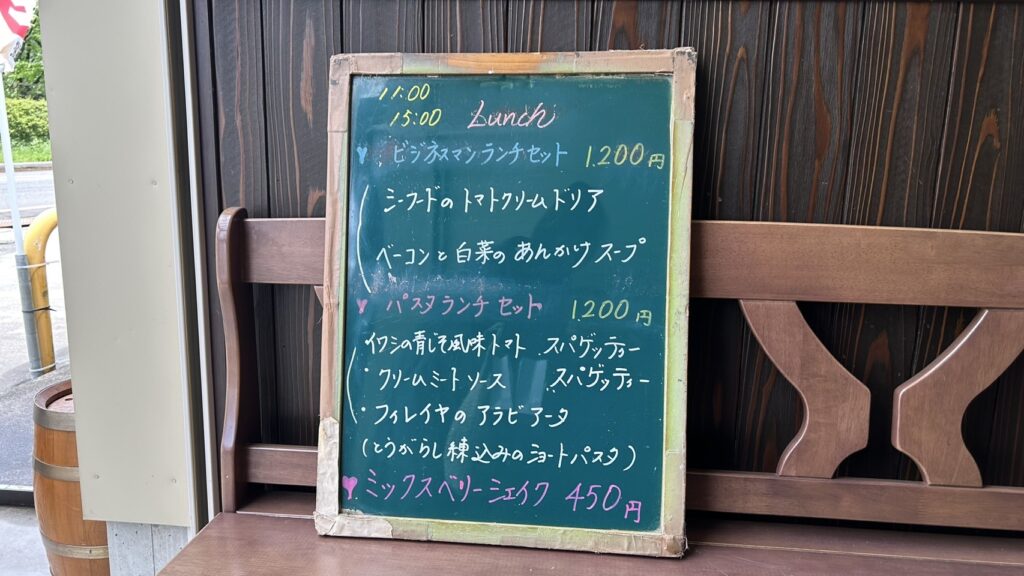 11:00
15:00 Lunch
♥ ビジネスマンランチセット 1,200円
シーフードのトマトクリームドリア
ベーコンと白菜のあんかけスープ
♥ パスタランチセット 1,200円
イワシの青じそ風味トマト スパゲッティー
・クリームミートソース スパゲッティー
・フィレイヤのアラビアータ
(とうがらし練込みのショートパスタ)
♥ ミックスベリーシェイク 450円